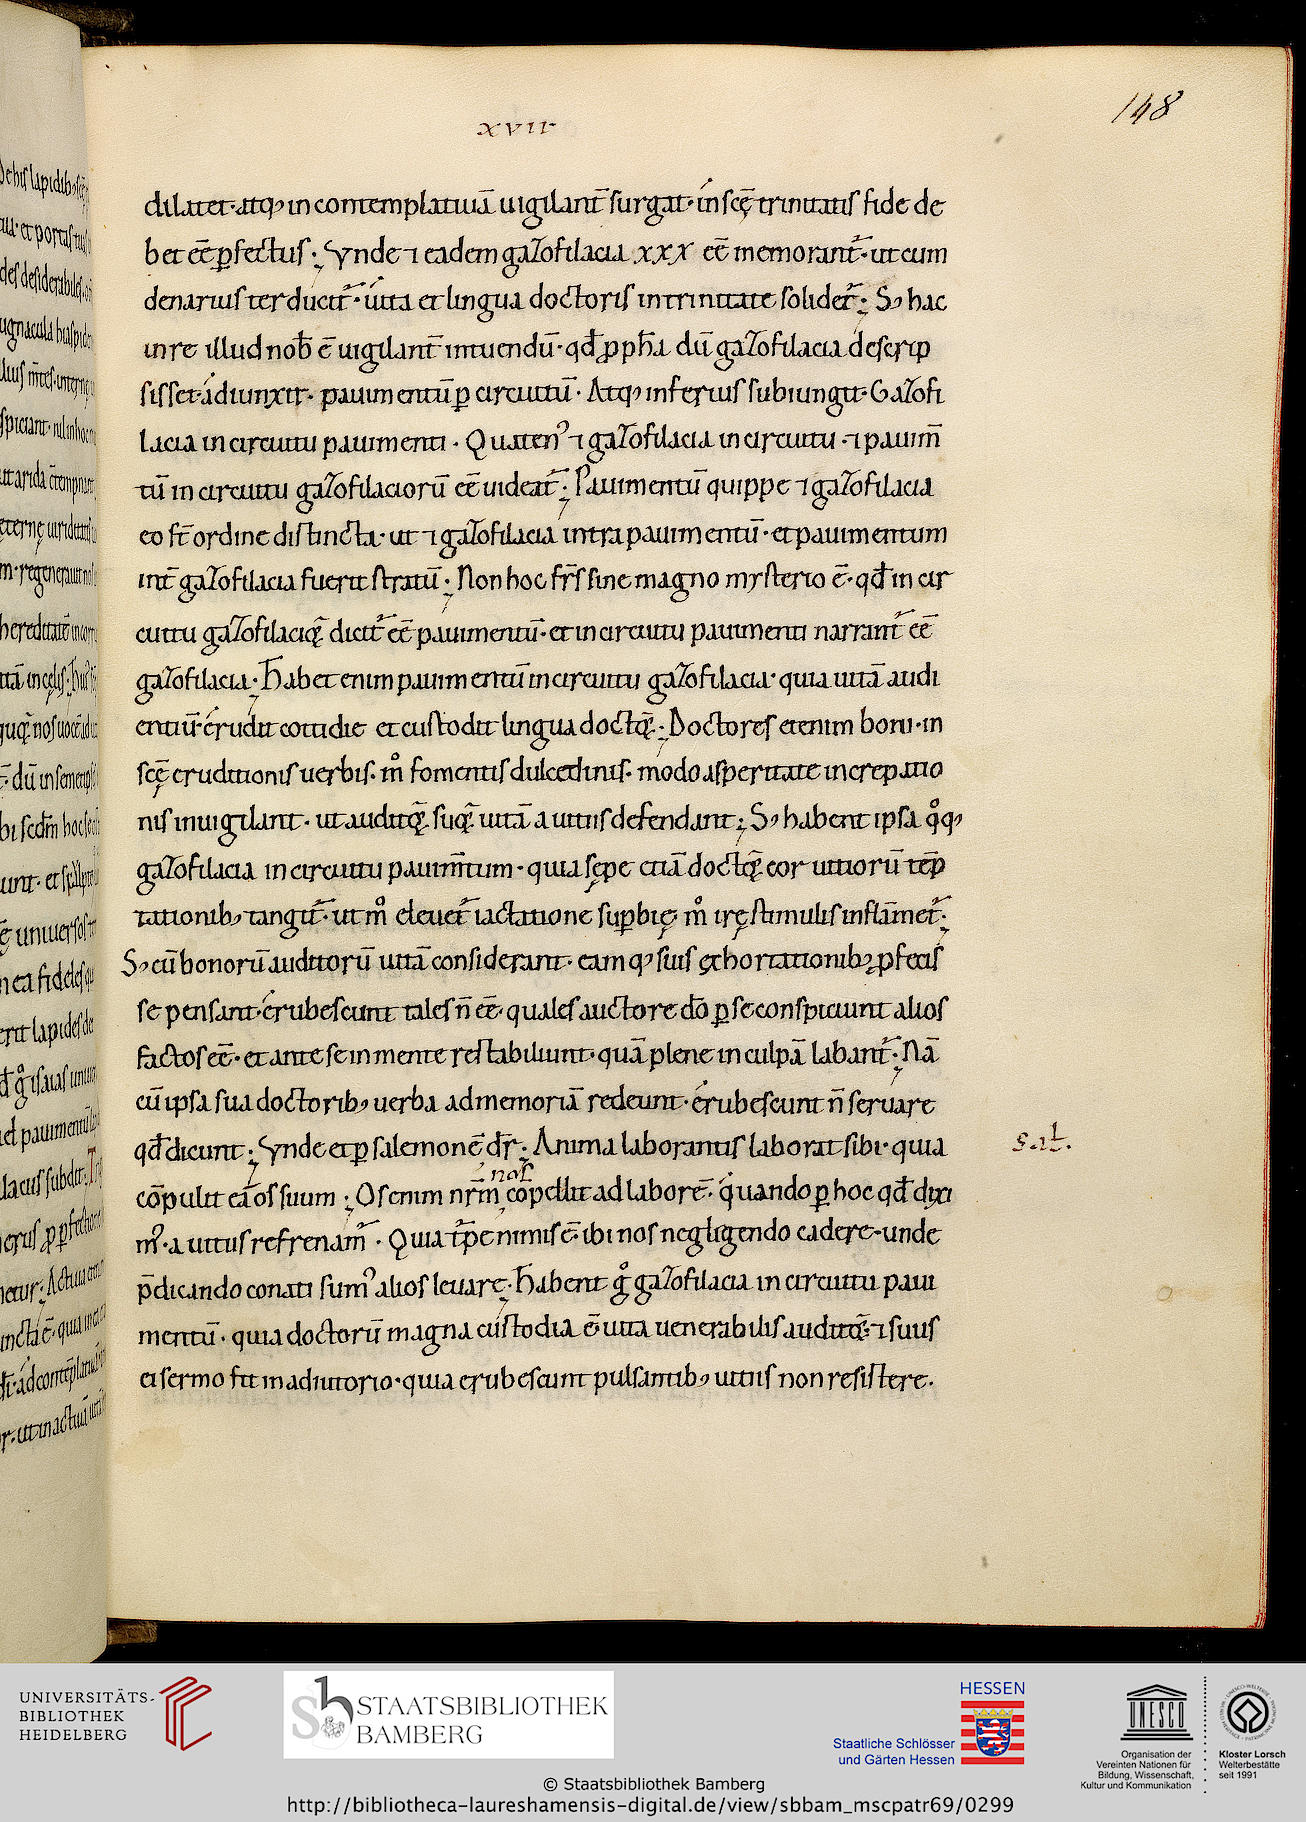 148
xvii
dilatet· atq; in contemplatiuā uigilant̄ surgat· in scę̄ trinitatis fide de
bet eē̄ ꝑfectus:, Vnde ⁊ eadem gazofilacia xxx eē̄ memorant᷑· ut cum
denarius ter ducit᷑· uita et lingua doctoris in trinitate solidet᷑:, S; hac
in re illud nob̄ ē uigilant̄ intuendū· qđ ꝓph̄a dū gazofilacia descrip
sisset· adiunxit· pauimentū ꝑ circuitū· Atq; inferius subiungit· Gazofi
lacia in circuitu pauimenti· Quaten᾽ ⁊ gazofilacia in circuitu· ⁊ pauim̄
tū in circuitu gazofilaciorū eē̄ uideat᷑:, Pauimentū quippe ⁊ gazofilacia
eo ft̄ ordine distincta· ut ⁊ gazofilacia intra pauimentū· et pauimentum
int̄ gazofilacia fuerit stratū:, Non hoc fr̄s sine magno mysterio ē· qđ in cir
cuitu gazofilacioꝝ dicit᷑ eē̄ pauimentū· et in circuitu pauimenti narrant᷑ eē̄
gazofilacia:, Habet enim pauimentū in circuitu gazofilacia· quia uitā audi
entiū erudit cottidie et custodit lingua doctoꝝ:, Doctores etenim boni· in
scę̄ eruditionis uerbis· m̊ fomentis dulcedinis· modo asperitate increpatio
nis inuigilant· ut auditoꝝ suoꝝ uitā a uitiis defendant:, S; habent ipsa q̊q;
gazofilacia in circuitu pauim̄tum· quia sępe etiā doctoꝝ cor uitiorū tēp
tationib; tangit᷑· ut m̊ eleuet᷑ iactatione suꝑbię m̊ irę stimulis inflāmet᷑:,
S; cū bonorū auditorū uitā considerant· eamq; suis exhortationib; ꝓfecis
se pensant· erubescunt tales n̄ eē̄· quales auctore dō ꝑ se conspiciunt alios
factos eē̄· et ante se in mente restabiliunt· quā plene in culpā labant᷑:, Nā
cū ipsa sua doctorib; uerba ad memoriā redeunt· erubescunt n̄ seruare
qđ dicunt:, Vnde et ꝑ salemonē dr̄:, Anima laborantis laborat sibi· quia
sal.
cōpulit eā os suum:, Os enim nr̄m cōpellit ad laborē· quando ꝑ hoc qđ dixi
nos
m᾽· a uitiis refrenam᷑· Quia t̄pe nimis ē· ibi nos negligendo cadere· unde
p̄dicando conati sum᾽ alios leuare:, Habent g̊ gazofilacia in circuitu paui
mentū· quia doctorū magna custodia ē uita uenerabilis auditoꝝ· ⁊ suus
ei sermo fit in adiutorio· quia erubescunt pulsantib; uitiis non resistere.
UNIVERSITÄTS-
BIBLIOTHEK
HEIDELBERG
STAATSBIBLIOTHEK
BAMBERG
HESSEN
Staatliche Schlösser
und Gärten Hessen
UNESCO
Organisation der
Vereinten Nationen für
Bildung, Wissenschaft,
Kultur und Kommunikation
Kloster Lorsch
Welterbestätte
seit 1991
© Staatsbibliothek Bamberg
http://bibliotheca-laureshamensis-digital.de/view/sbbam_mscpatr69/0299